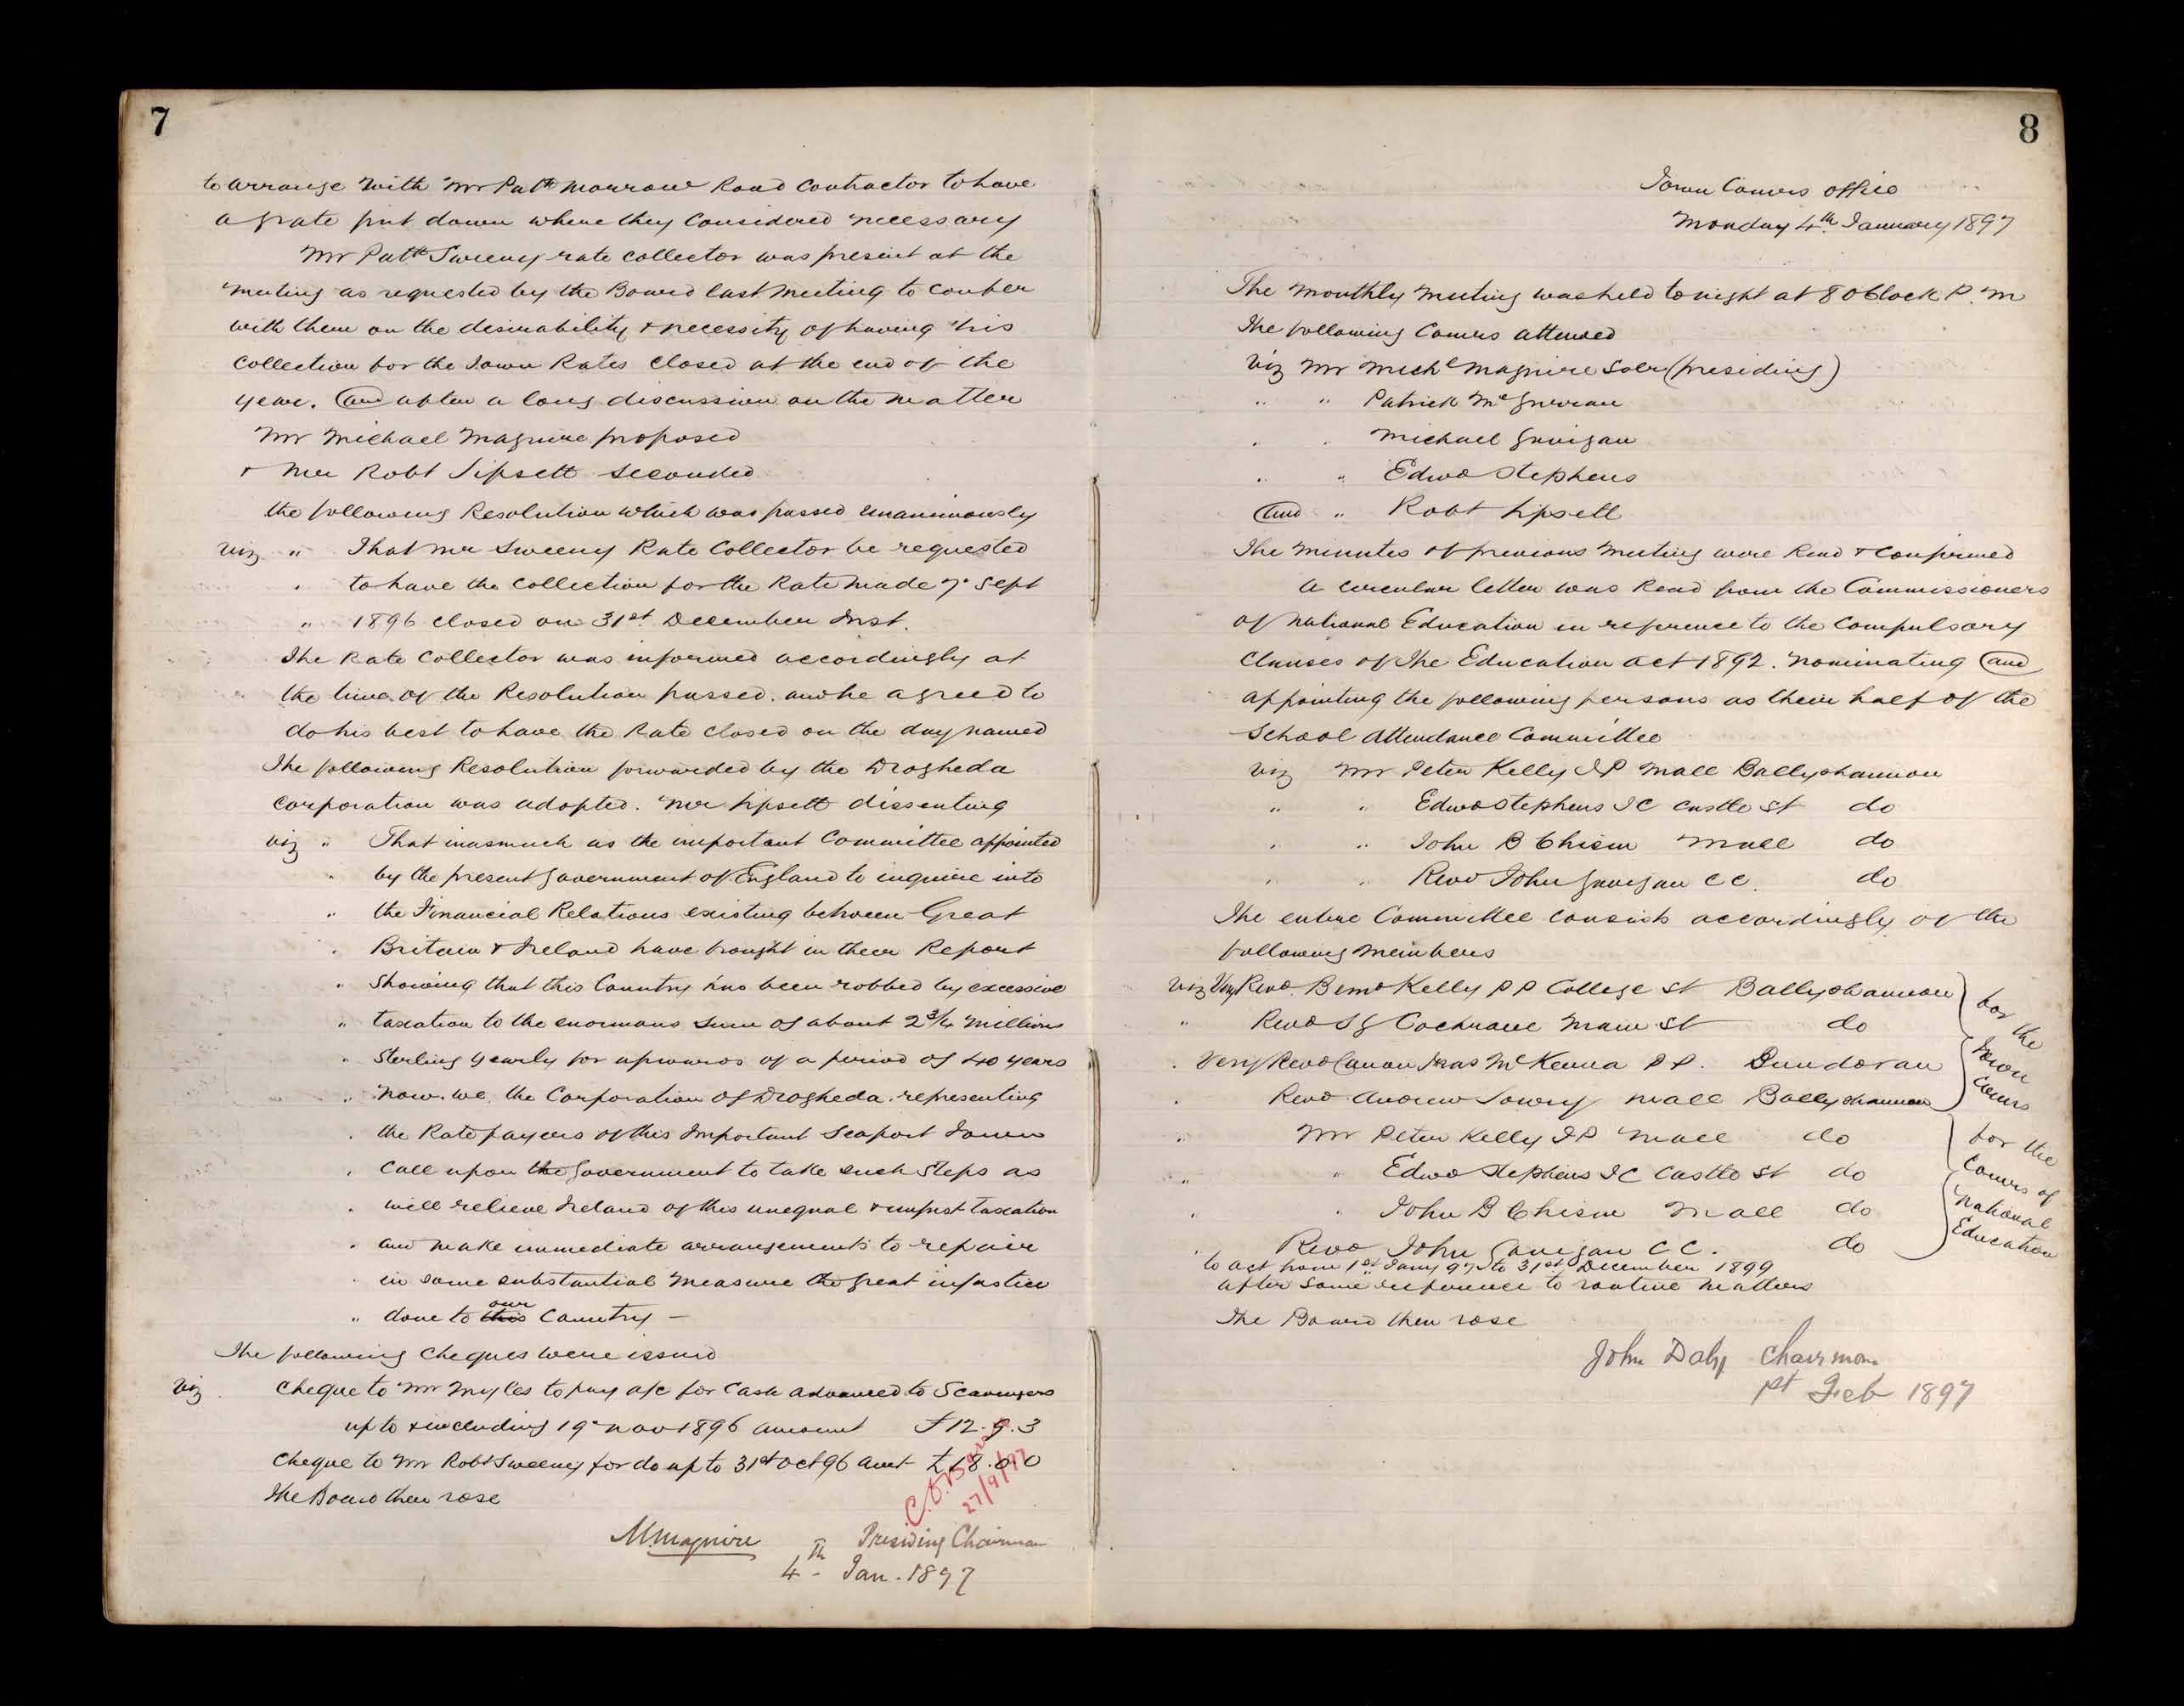 7
to arrange with Mr Patk Morrow Road Contractor to have
a grate put down where they Considered necessary
Mr Patk Sweeny rate collector was present at the
meeting as requested by the Board last meeting to confer
with them on the desirability & necessity of having his
Collection for the Town Rates closed at the end of the
year. and after a long discussion on the matter
Mr Michael Maguire proposed
& Mr Robt Lipsett seconded
the following Resolution which was passed unanimously
viz " That Mr Sweeny Rate Collector be requested
" to have the Collection for the Rate made 7" Sept
" 1896 closed on 31st December Inst.
The Rate Collector was informed accordingly at
the time of the Resolution passed. and he agreed to
do his best to have the Rate closed on the day named
The following Resolution forwarded by the Drogheda
Corporation was adopted. Mr Lipsett dissenting
viz " That inasmuch as the important Committee appointed
" by the present Government of England to inquire into
" the Financial Relations existing between Great
" Britain & Ireland have brought in their Report
" Showing that this Country has been robbed by excessive
" taxation to the enormous sum of about 2 3/4 Millions
" Sterling yearly for upwards of a period of 40 years
" Now. we. the Corporation of Drogheda. representing
" the Ratepayers of this Important Seaport Town
" Call upon the Government to take such Steps as
" will relieve Ireland of this unequal & unjust taxation
" and make immediate arrangements to repair
" in some substantial measure the great injustice
" done to this our Country –
The following Cheques were issued
viz. Cheque to Mr Myles to pay a/c for Cash advanced to Scavengers
up to & including 19" Nov 1896 amount £12.9.3
Cheque to Mr Robt Sweeny for do up to 31st Oct 96 amt £18.0.0
The Board then rose
27/9/97
M. Maguire Presiding Chairman
4th Jan. 1897
8
Town Comrs office
Monday 4th January 1897
The Monthly Meeting was held to night at 8 O'Clock P.M
The following Comrs attended
Viz Mr Michl Maguire Solr (presiding)
" " Patrick McGurran
" " Michael Gavigan
" " Edwd Stephens
and " Robt Lipsett
The Minutes of previous Meeting were Read & Confirmed
A circular letter was Read from the Commissioners
of National Education in reference to the Compulsory
Clauses of The Education Act 1892. nominating and
appointing the following persons as their half of the
School Attendance Committee
Viz Mr Peter Kelly JP Mall Ballyshannon
" " Edwd Stephens TC Castle St do
" " John B Chism Mall do
" " Revd John Gavigan CC. do
The entire Committee consists accordingly of the
following members
Viz Very Revd. Bernd Kelly PP College St Ballyshannon
" Revd S G Cochrane Main St do
" Very Revd Canon Thas McKenna PP. Bundoran
" Revd Andrew Lowry Mall Ballyshannon
for the
Town
Comrs
" Mr Peter Kelly JP Mall do
" " Edwd Stephens TC Castle St do
" " John B Chism Mall do
" Revd John Gavigan CC. do
for the
Comrs of
National
Education
to act from 1st Jany 97 to 31st December 1899
after some reference to routine matters
The Board then rose
John Daly Chairman
1st Feb 1897